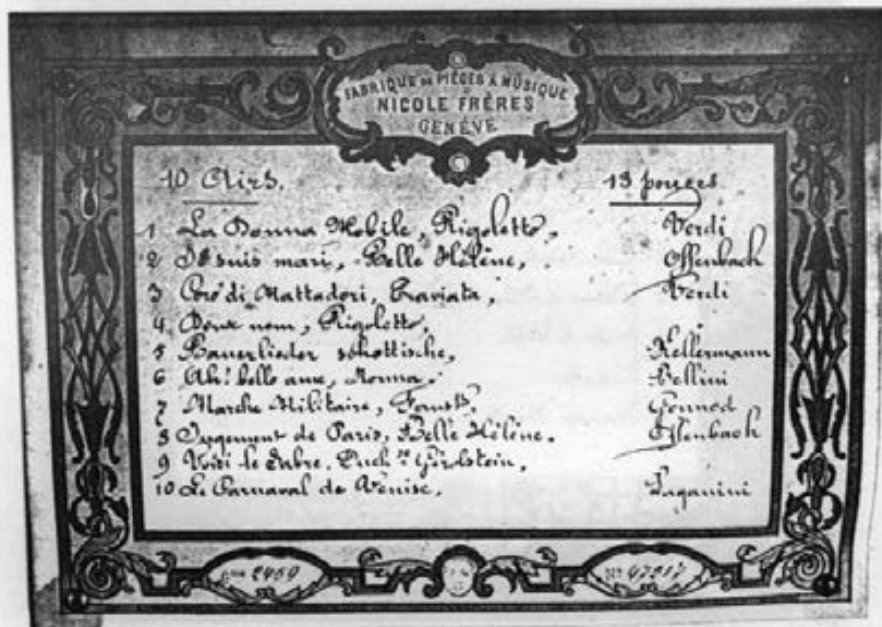 FABRIQUE DE PIÈCES A MUSIQUE
NICOLE FRÈRES
GENÈVE
10 Airs. 13 pouces
1 La Donna Mobile, Rigoletto, Verdi
2 suis mari, Belle Hélène, Offenbach
3 Coro di Mattadori, Traviata, Verdi
4 Doux nom, Rigoletto,
5 Bauerlieder schottische, Kellermann
6 Ah! bello ame, Norma, Bellini
7 Marche Militaire, Faust, Gounod
8 Jugement de Paris, Belle Hélène. Offenbach
9 Voici le Sabre, Duch.
10 Le Carnaval de Venise, Paganini
2459 47317